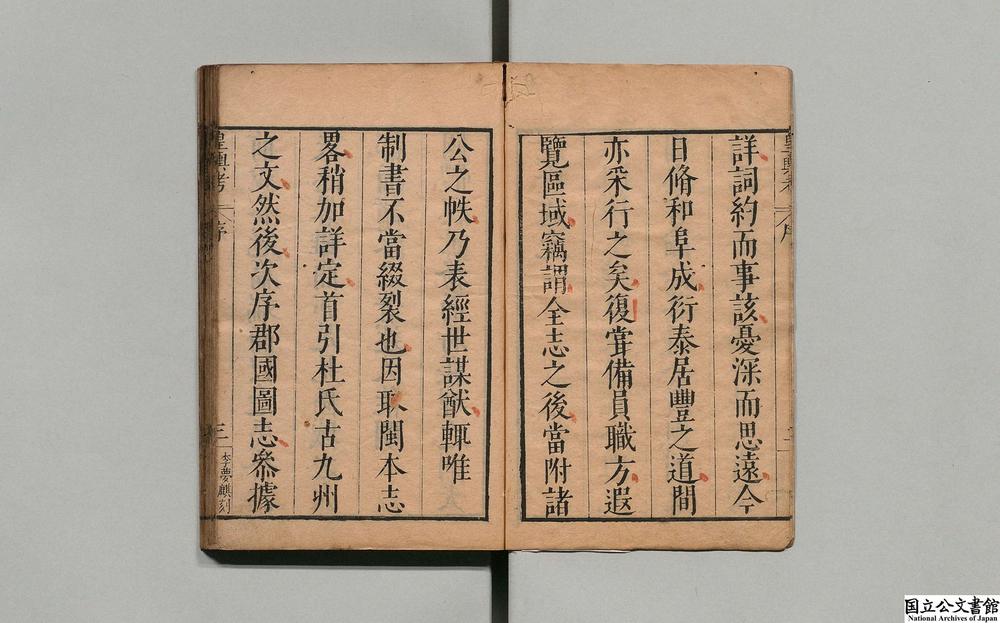 詳詞約而事該憂深而思遠今
日脩和阜成衍泰居豐之道間
亦采行之矣復嘗備員職方遐
覽區域竊謂全志之後當附諸
公之帙乃表經世謀猷輒唯
制書不當綴裂也因取閩本志
畧稍加詳定首引杜氏古九州
之文然後次序郡國圖志叅據
皇輿考
序
三
李夢麒刻
国立公文書館
National Archives of Japan